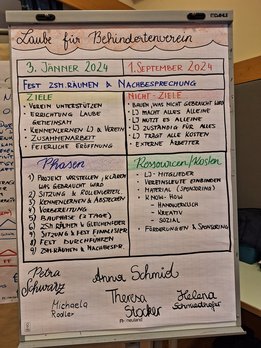 Laube für Behindertenverein
3. Jänner 2024
1. September 2024
Fest zsm. räumen & Nachbesprechung
Ziele
- Verein unterstützen
Errichtung Laube
Gemeinsam
- Kennenlernen LJ & Verein
- Zusammenarbeit
- Feierliche Eröffnung
Nicht-Ziele
- Bauen, was nicht gebraucht wird
- LJ macht alles alleine
- LJ nutzt es alleine
- LJ zuständig für alles
- LJ trägt alle Kosten
- Externe Arbeiter
Phasen
1) Projekt vorstellen / klären
was gebraucht wird
2) Sitzung & Rollenverteil.
3) Kennenlernen & Abstecken
4) Vorbereitung
5) Bauphase (2 Tage)
6) zsm. räumen & Gleichenfeier
7) Sitzung & Fest
8) Fest durchführen
9) zsm. räumen & Nachbespr.
Ressourcen/Kosten
- LJ-Mitglieder
- Vereinsleute einbinden
- Material (Sponsoring)
- Know-How
- Handwerklich
- Kreativ
- Sozial
- Förderungen & Sponsoring
Petra
Schwarz
Anna Schmid
Michaela
Theresa
Stocker
Helena
neuland